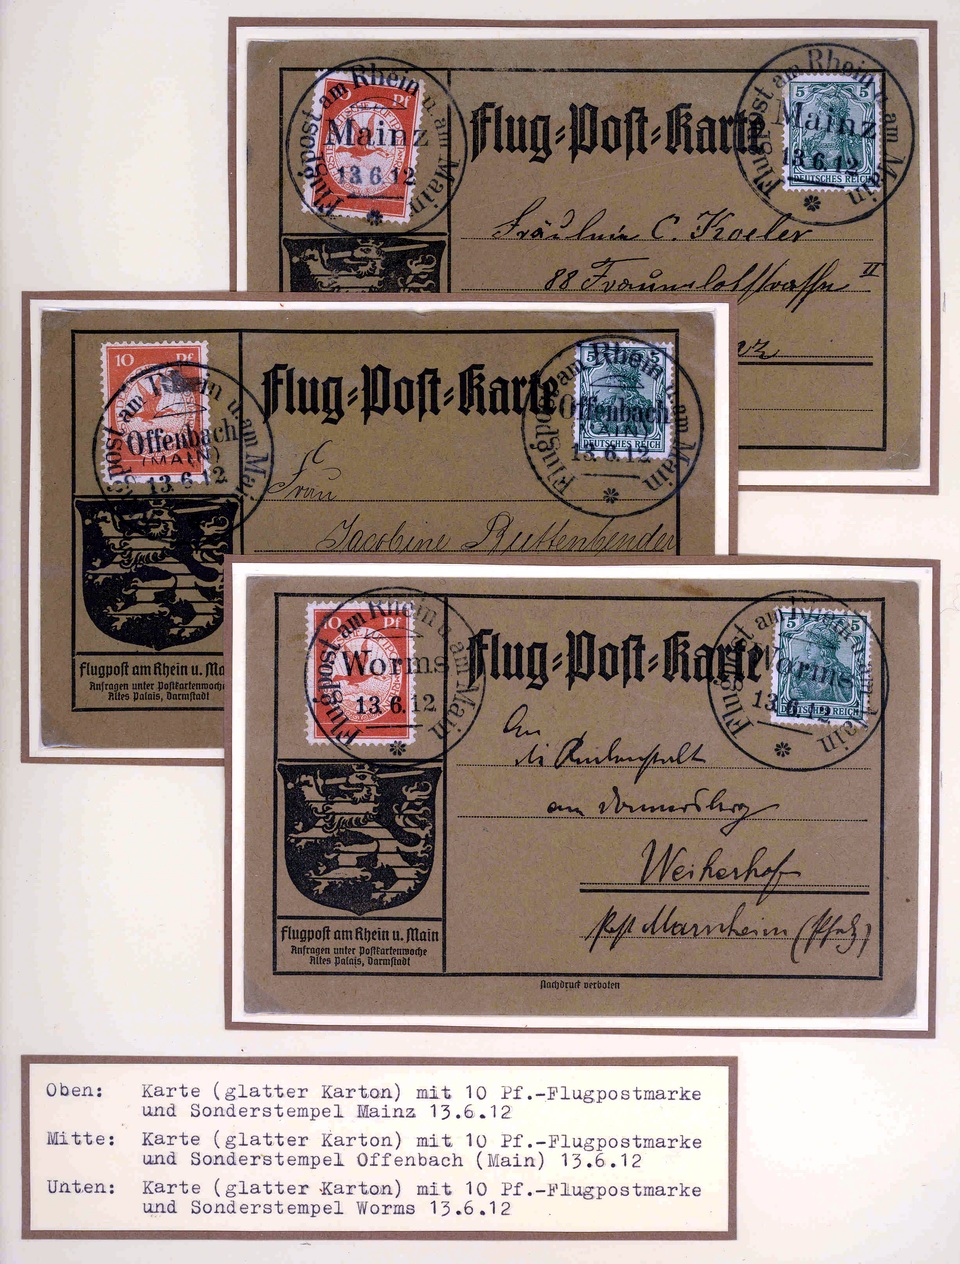 Flugpost am Rhein u. am Main
Mainz
13.6.12
Pf
Flug-Post-Karte
Flugpost am Rhein u. am Main
Mainz
13.6.12
5 5
DEUTSCHES REICH
Fräulein C. Koeler
88 Frauenlobstrasse II
10 Pf
am Rhein u. am Main
Offenbach
(MAIN)
13.6.12
Flug-Post-Karte
Flugpost am Rhein u. am Main
Offenbach
(MAIN)
13.6.12
5 5
DEUTSCHES REICH
Frau
Jacobine
Flugpost am Rhein u. Ma
Anfragen unter Postkartenwoche
Altes Palais, Darmstadt
10 Pf
Flugpost am Rhein u. am Main
Worms
13.6.12
Flug-Post-Karte
Flugpost am Rhein u. am Main
Worms
13.6.12
5 5
DEUTSCHES REICH
An
die
am Donnersberg
Weiherhof
Post Marnheim (Pfalz)
Flugpost am Rhein u. Main
Anfragen unter Postkartenwoche
Altes Palais, Darmstadt
Nachdruck verboten
Oben: Karte (glatter Karton) mit 10 Pf.-Flugpostmarke
und Sonderstempel Mainz 13.6.12
Mitte: Karte (glatter Karton) mit 10 Pf.-Flugpostmarke
und Sonderstempel Offenbach (Main) 13.6.12
Unten: Karte (glatter Karton) mit 10 Pf.-Flugpostmarke
und Sonderstempel Worms 13.6.12